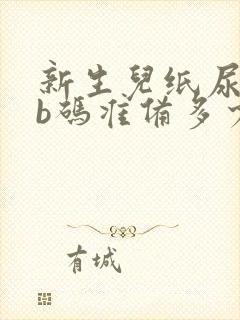 新生兒纸尿
b碼准備多
有城